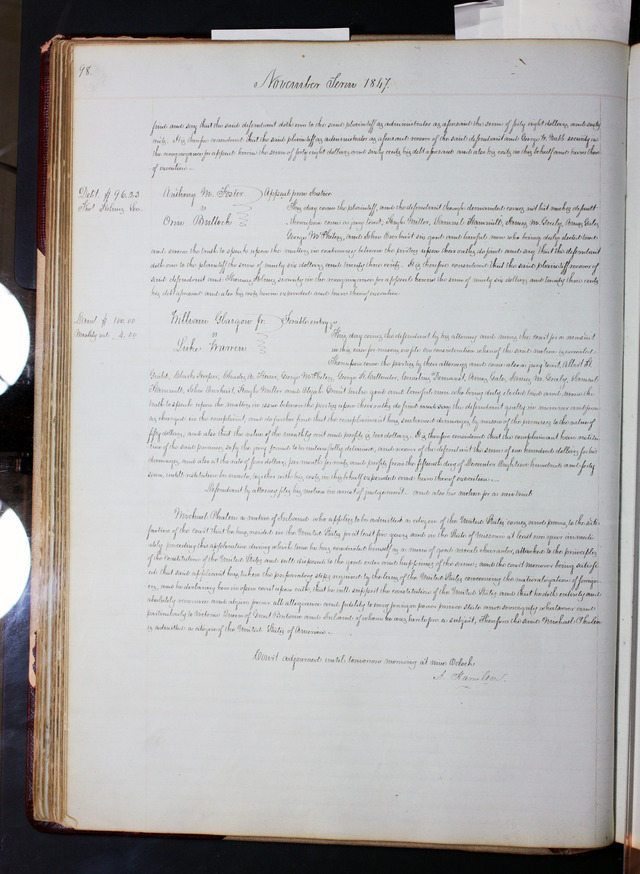 98.
November Term 1847.
find and say that the said defendant doth owe to the said plaintiff as administrator as aforesaid the sum of forty eight dollars, and sixty
cents. It is therefore considered that the said plaintiff as administrator as aforesaid recover of the said defendant and George W. security in
the recognizance for appeal herein the sum of forty eight dollars and sixty cents his debt aforesaid and also his costs in this behalf and have thereof
execution.
Debt $96.23
Thos Holmes Sec.
Anthony M. Foster
vs
Orin Bullock
Appeal from Justice
This day comes the plaintiff, and the defendant though demanded comes not but makes default
whereupon came a jury to wit, Joseph Miller, Samuel Hammitt, James M. Amos
George McPhetry, and John good and lawful men who being duly elected tried
and sworn the truth to speak upon the matters in controversy between the parties upon their oaths do find and say that the defendant
doth owe to the plaintiff the sum of ninety six dollars and twenty three cents. It is therefore considered that the said plaintiff recover of
said defendant and Thomas Holmes security in the recognizance for appeal herein the sum of ninety six dollars, and twenty three cents
his debt aforesaid and also his costs herein expended and have thereof execution.
$100.00
Monthly rent 4.00
William Glasgow Jr.
vs
Luke Warren
Forcible entry &c
This day comes the defendant by his attorney and moves the court for a nonsuit
in this case for
Thereupon came the parties by their attorneys and came also a jury to wit, Albert H.
George McPhetry, George W. Callender, Cornelius Amos James M. Samuel
Hammitt, John Joseph Miller and Elijah twelve good and lawful men who being duly elected tried and sworn the
truth to speak upon the matters in issue between the parties upon their oaths do find and say the defendant guilty in manner and form
as charged in the complaint, and do further find that the complainant has sustained damages by reason of the premises to the value of
fifty dollars, and also that the value of the monthly rent and profits is two dollars. It is therefore considered that the complainant have restitution
of the said premises by the jury found to be unlawfully detained, and recover of the defendant the sum of one hundred dollars for his
damages, and also at the rate of four dollars per month for rents and profits from the fifteenth day of December Eighteen hundred and forty
seven, until restitution be made, together with his costs in this behalf expended and have thereof execution.
Defendant by attorney files his motion in arrest of judgement and also his motion for a new trial
Michael Phelan a native of Ireland who applies to be admitted a citizen of the United States comes and proves to the satis-
faction of the court that he has resided in the United States for at least five years, and in the State of Missouri at least one year immedi-
ately preceding this application during which time he has conducted himself as a man of good moral character, attached to the principles
of the constitution of the United States and well disposed to the good order and happiness of the same; and the court moreover being satisfi-
ed that said applicant has taken the preparatory steps required by the laws of the United States concerning the naturalization of foreign-
ers, and he declaring here in open court upon oath, that he will support the constitution of the United States and that he doth entirely and
absolutely renounce and abjure forever all allegiance and fidelity to every foreign power prince state and sovereignty whatsoever and
particularly to Victoria Queen of Great Britain and Ireland of whom he was heretofore a subject, Therefore the said Michael Phelan
is admitted a citizen of the United States of America.
Court adjourned until tomorrow morning at nine Oclock.
A. Hamilton.